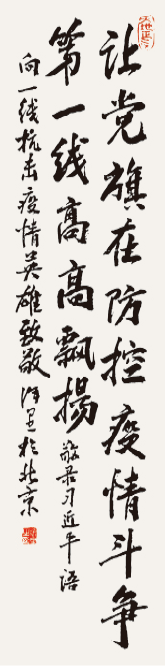 让党旗在防控疫情斗争
第一线高高飘扬 敬录习近平语
向一线抗击疫情英雄致敬 于北京